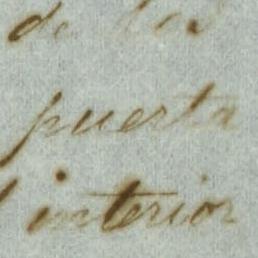 de los
puerta
interior